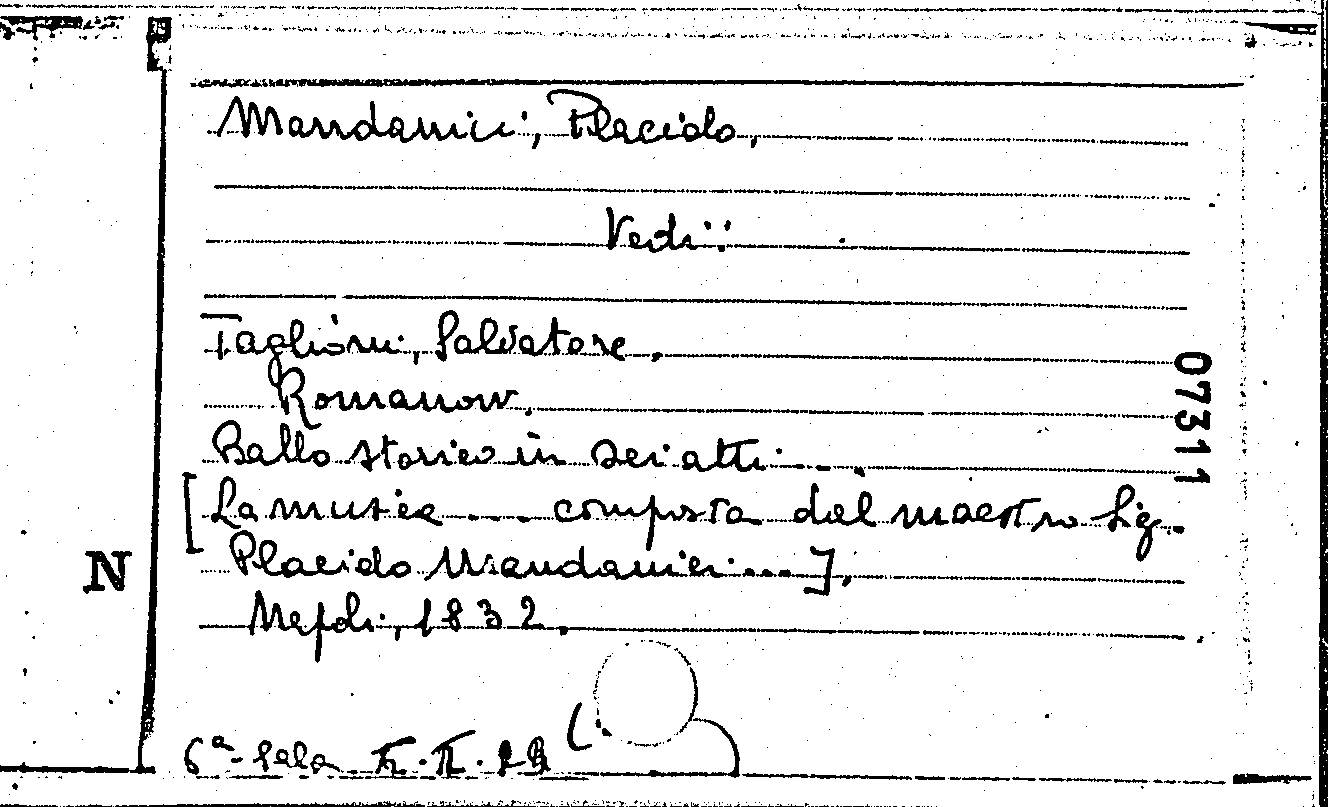 Mandanici, Placido.
Vedi:
Taglioni, Salvatore.
Romanow.
Ballo storico in sei atti ....
[La musica .... composta dal maestro Sig.
Placido Mandanici ....].
Napoli, 1832.
6ª Sala
07311
N